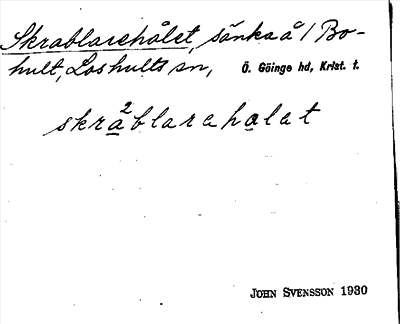 Skrablarehålet, sänka å / Bo-
hult, Loshults sn, Ö. Göinge hd, Krist. l.
skra²blarehalet
JOHN SVENSSON 1930